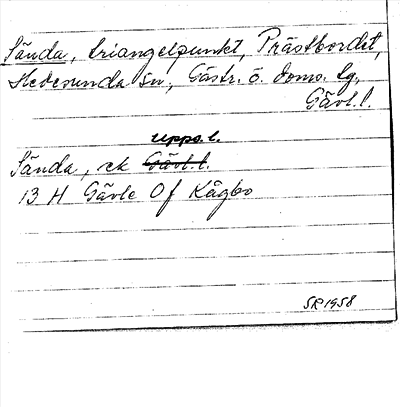 Sända, triangelpunkt, Prästbordet,
Hedesunda sn, Gästr. ö. doms. lg,
Gävl. l.
Upps. l.
Sända, ek Gävl. l.
13 H Gävle Of Kågbo
SR 1958